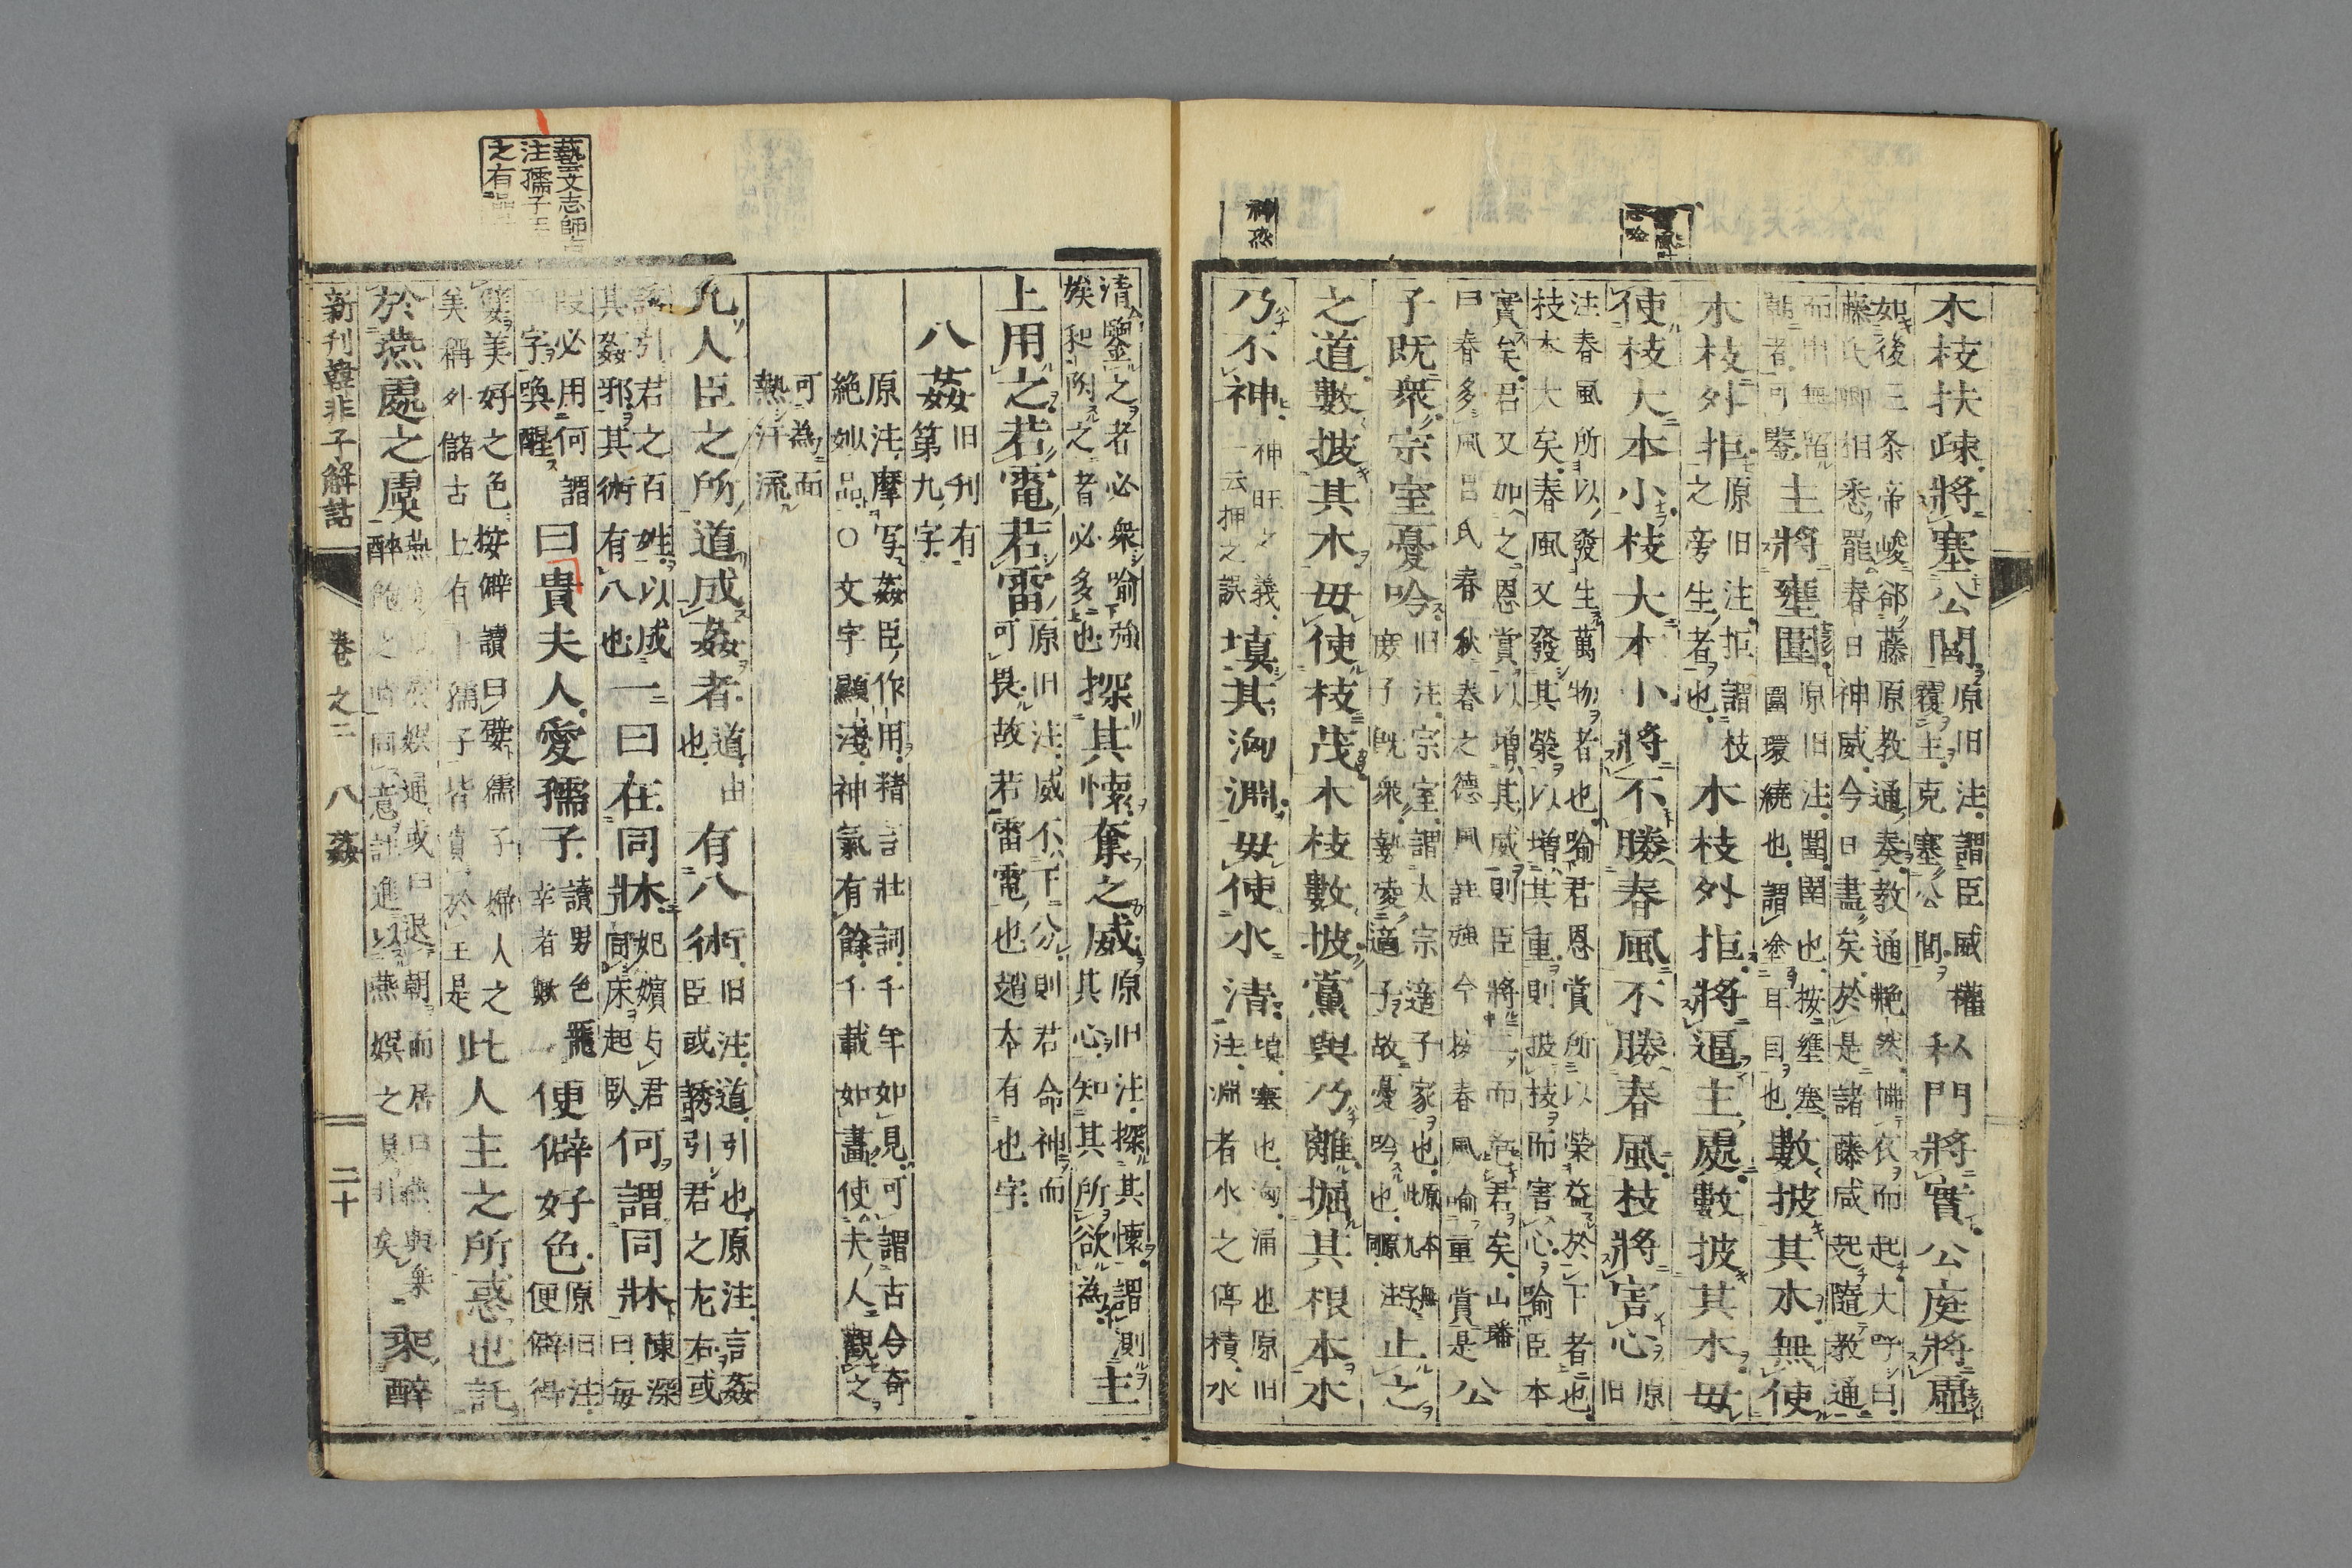 木枝扶疎將塞公閭原旧注謂臣威權覆主充塞公閭私門將實公庭將虛
如後三条帝峻郤藤原教通奏教通艴然拂衣而起大呼曰
藤氏卿相悉罷春日神威今日盡矣於是諸藤咸起隨教通
主將壅圍原旧注圍圉也按壅塞圍環繞也謂塗耳目也數披其木無使
木枝外拒原旧注拒謂枝之旁生者也木枝外拒將逼主處數披其木毋
使枝大本小枝大本小將不勝春風不勝春風枝將害心原旧
注春風所以發生萬物者也喻君恩賞所以榮益於下者也
枝本大矣春風又發其榮以增其重則披枝而害心喻臣本
實矣君又如之恩賞以增其威則臣將
曰春多風呂氏春秋春之德風註強今按春風喻重賞是公
子既衆宗室憂吟旧注宗室謂太宗適子家也庶子既衆勢凌適子故憂吟也止之
之道數披其木毋使枝茂木枝數披黨與乃離掘其根本木
乃不神神旺之義一云押之誤填其洶淵毋使水清填塞也洶涌也原旧注淵者水之停積水
清鑒之者必衆喻強
探其懷奪之威原旧注探其懷謂測其心知其所欲為主
上用之若電若雷原旧注威不下分則君命神而可畏故若雷電也趙本有也字
八姦第九旧刊有九字
原注摩写姦臣作用精言壯詞千年如見可謂古今奇
絕妙品〇文字顯淺神氣有餘千載如畫使夫人觀之
可為面
熱汗流
凡人臣之所道成姦者道由也有八術旧注道引也原注言姦臣或誘引君之左右或
誘引君之百姓以成
其姦邪其術有八也一曰在同牀妃嬪与君同床起臥何謂同牀陳深曰每
段必用何謂
字喚醒曰貴夫人愛孺子讀男色寵幸者歟便僻好色原旧注便僻得
嬖美好之色按僻讀曰嬖孺子婦人之
美稱外儲右上有十孺子皆貴於王是此人主之所惑也託
於燕處之虞乘醉
新刊韓非子解詁
卷之二
八姦
二十
藝文志師古
注孺子王
之有品